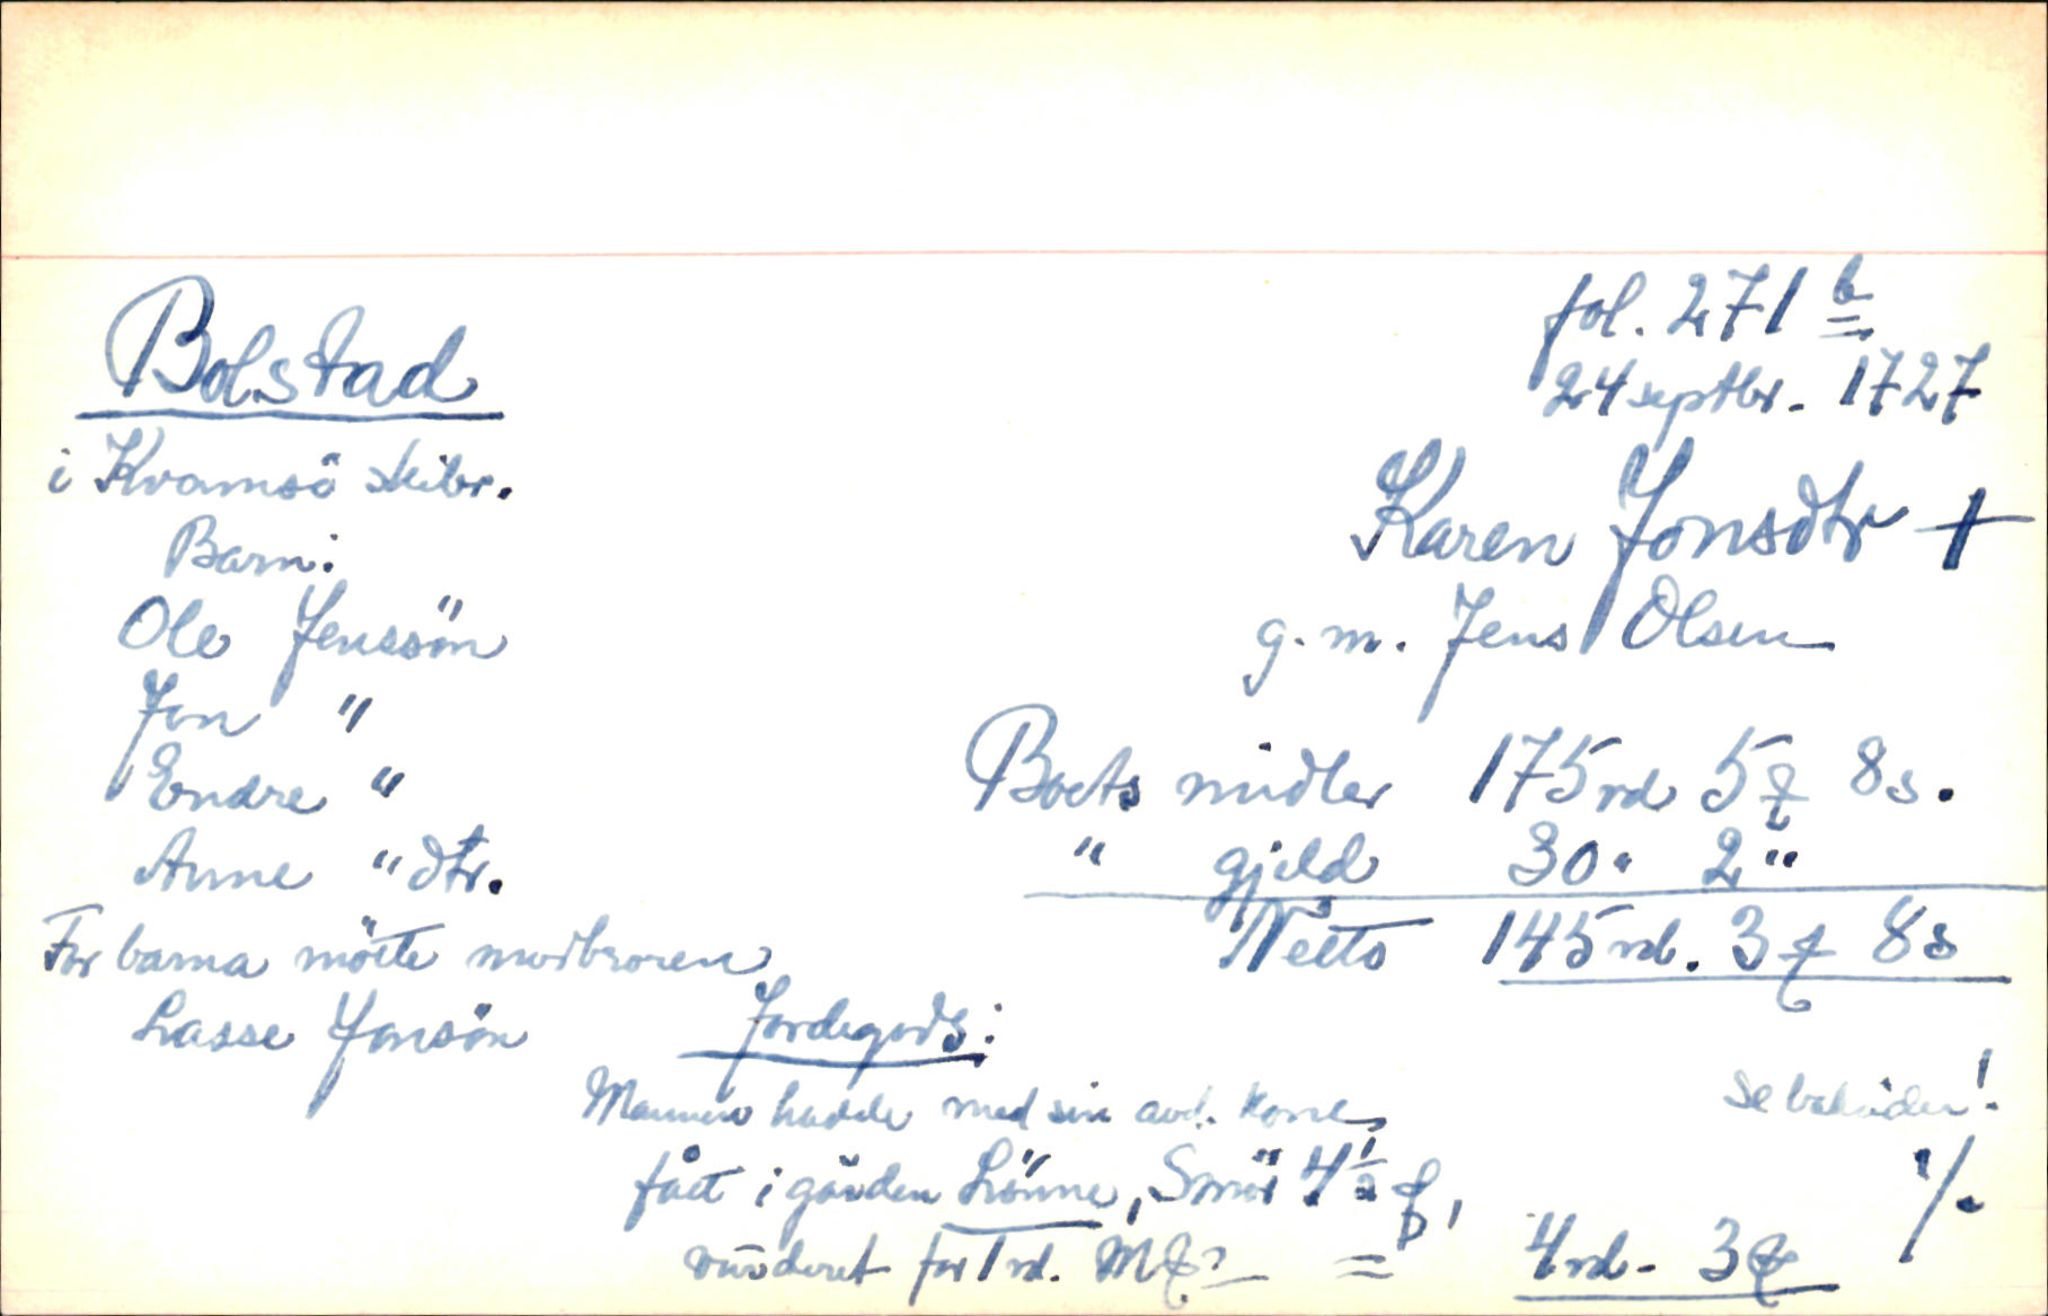 fol. 271 b
Bolstad
24 septbr. 1727
i Kvamsö skibr.
Karen Jonsdtr +
Barn:
g. m. Jens Olsen
Ole Jenssön
Jon "
Boets midler 175 rd 5 8 s.
Endre "
" gjeld 30 " 2 "
Anne " dtr.
Netto 145 rd. 3 8 s
For barna mötte morbroren
Lasse Jonsön
Jordegods:
Mannen hadde med sin avd. kone
se baksiden!
fått i gården Lönne, Smör 4 1/2
·/.
vurderet for 1 rd. = 4 rd. 3